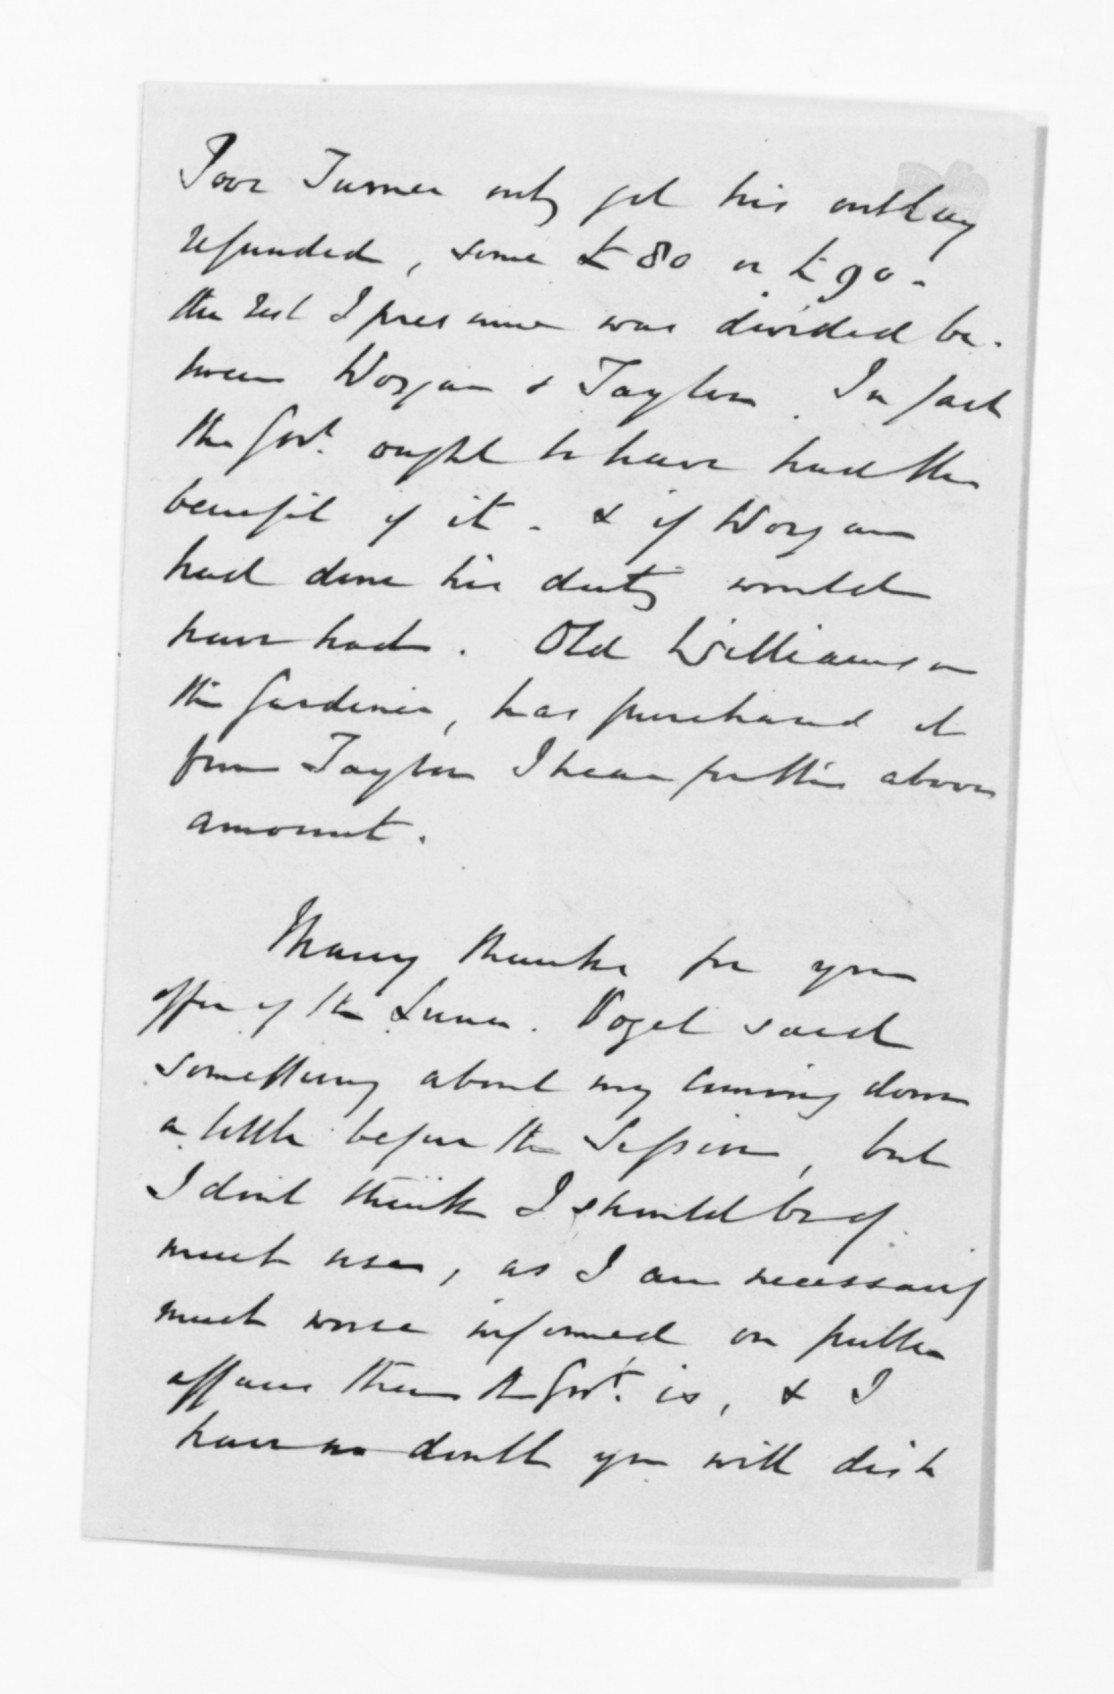 Poor Turner only got his outlay
refunded, some £80 or £90 -
the rest I presume was divided be-
tween Worgan & Taylor. In fact
the Govt. ought to have had the
benefit of it - & if Worgan
had done his duty would
have had. Old Williamson
the Gardener, has purchased it
from Taylor I hear for the above
amount.
Many thanks for your
offer of the Luna. Vogel said
something about my coming down
a little before the Session, but
I dont think I should be of
much use, as I am necessarily
much worse informed on public
affairs than the Govt. is, & I
have no doubt you will dish